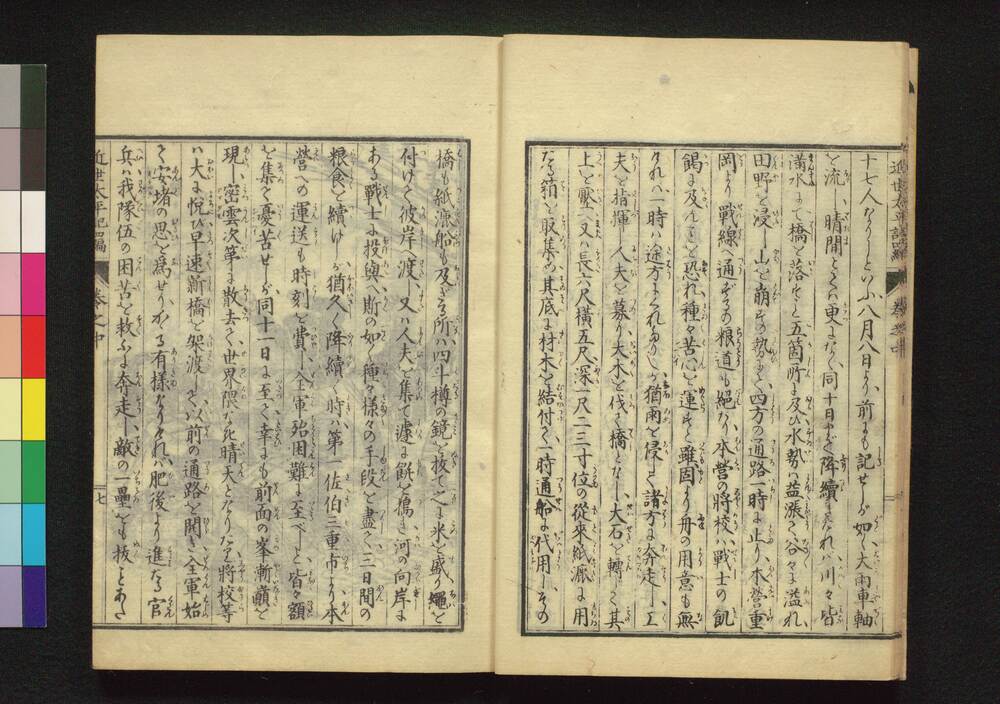 十七人なりしといふ八月八日より前にも記せしが如く大雨車軸
を流し晴間とては更になく同十日まで降續きたれバ川々皆
満水にて橋の落ること五箇所に及び水勢ハ益漲て谷々に溢れ
田野を浸し山を崩その勢もて四方の通路一時に止り本營重
岡より戰線へ通ずるの粮道も絕えなり本營の將校ハ戰士の飢
餲に及んことを恐れ種々苦心を運すと雖固より舟の用意も無
けれバ一時ハ途方にくれたりしが猶雨を侵して諸方に奔走し工
夫を指揮し人夫を募り大木を伐て橋となし大石を轉して其
上を壓へ又ハ長六尺橫五尺深一尺二三寸位の從來紙漉に用
たる箱を取集め其底に材木を結付て一時通船に代用しその
橋も紙漉船も及ざる所ハ四斗樽の鏡を抜て之に米を盛り繩を
付けて彼岸へ渡し又ハ人夫を集て遽に餅を搗き河の向岸に
ある戰士に投與へ斯の如く陣々様々の手段を盡して三日間の
粮食を續けしが猶久く降續く時ハ第一佐伯三重市より本
營への運送も時刻を費し全軍殆困難に至べしと皆々額
を集て憂苦せしが同十一日に至て幸にも前面の峯漸巓を
現し密雲次第に散去て世界隈なき晴天となりたり將校等
ハ大に悅び早速新橋を架渡しせバ以前の通路を開き全軍始
て安堵の思を為せりかゝる有様なりければ肥後より進たる官
兵ハ我隊伍の困苦を救ふに奔走し敵の一壘をも抜ことあた
近世太平記四編
卷之中
七